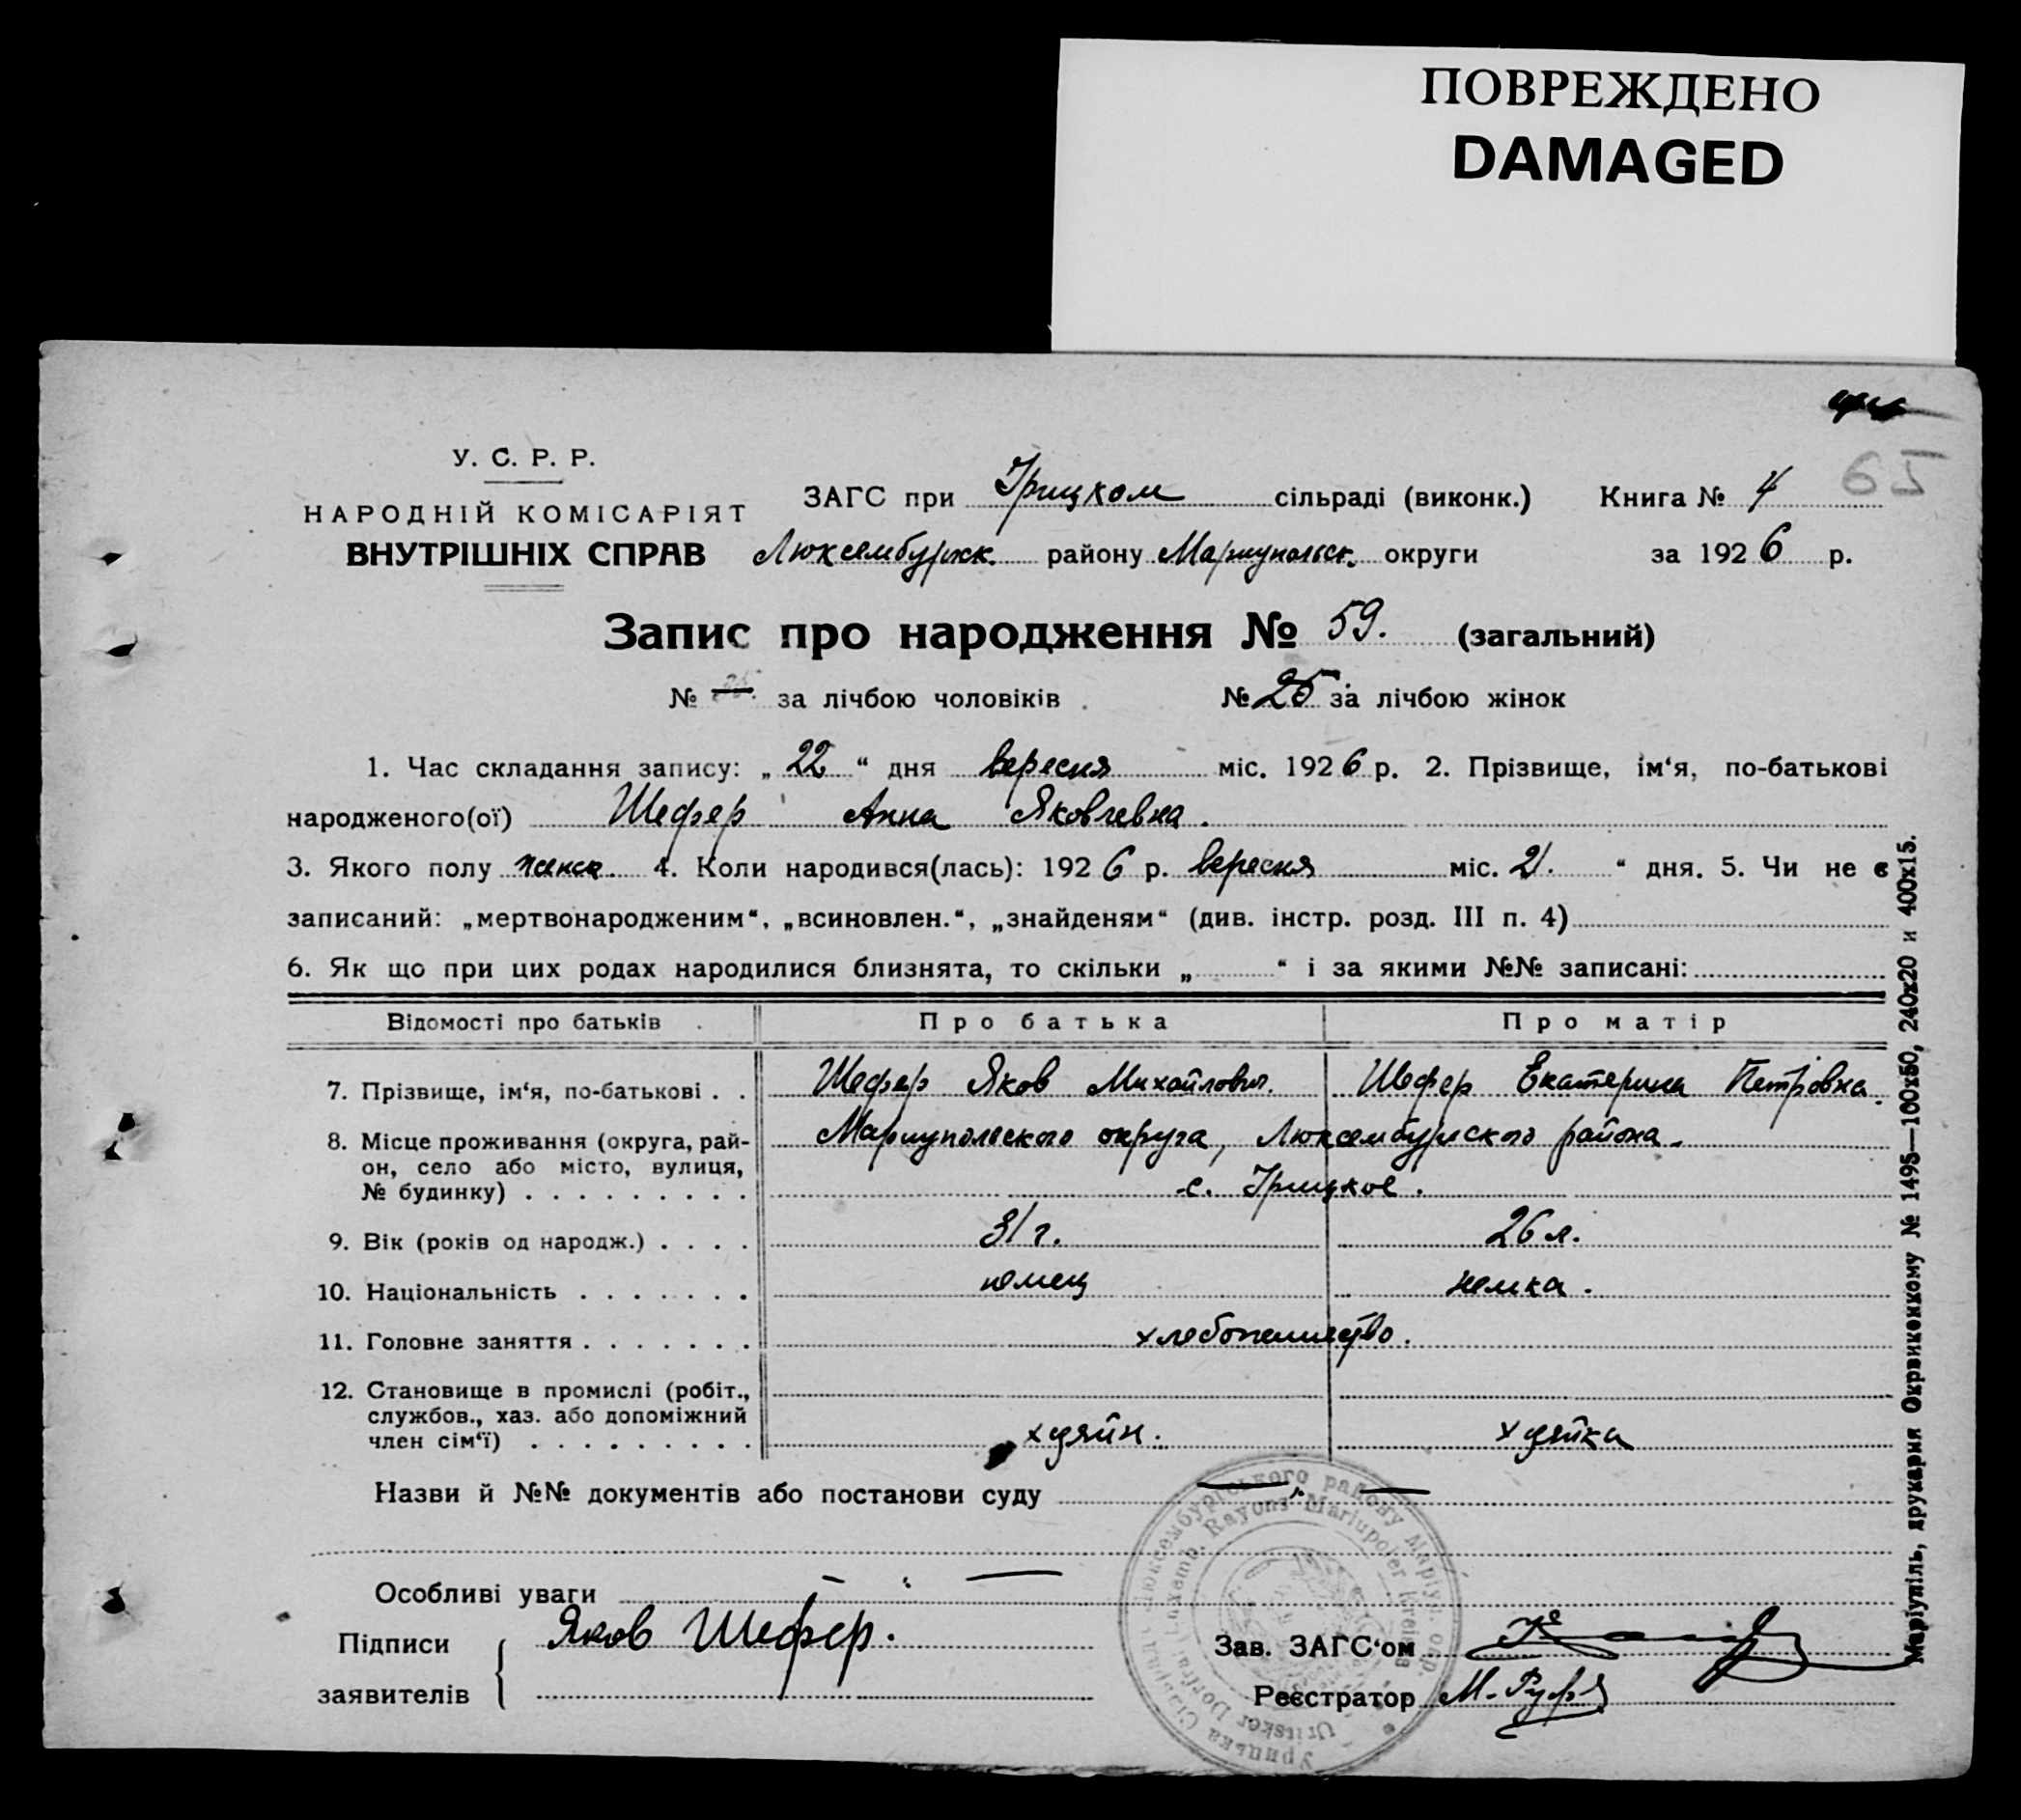 ПОВРЕЖДЕНО
DAMAGED
65
У. С. Р. Р.
НАРОДНІЙ КОМІСАРІЯТ
ВНУТРІШНІХ СПРАВ
ЗАГС при Урицком сільраді (виконк.) Книга № 4
Люксембуржск. району Мариупольск. округи за 1926 р.
Запис про народження № 59. (загальний)
№ — за лічбою чоловіків № 25 за лічбою жінок
1. Час складання запису: „ 22 “ дня вересня міс. 1926 р. 2. Прізвище, ім‘я, по-батькові
народженого(ої) Шефер Анна Яковлевна.
3. Якого полу женск. 4. Коли народився(лась): 1926 р. вересня міс. 21. “ дня. 5. Чи не є
записаний: „мертвонародженим“, „всиновлен.“, „знайденям“ (див. інстр. розд. III п. 4)
6. Як що при цих родах народилися близнята, то скільки „ “ і за якими №№ записані:
Відомості про батьків Про батька Про матір
7. Прізвище, ім‘я, по-батькові . . Шефер Яков Михайлович. Шефер Екатерина Петровна.
8. Місце проживання (округа, рай- Мариупольского округа, Люксембургского района.
он, село або місто, вулиця,
№ будинку) . . . . . . . . . с. Урицкое.
9. Вік (років од народж.) . . . . 31 г. 26 л.
10. Національність . . . . . . . немец немка.
11. Головне заняття . . . . . . . хлебопашество.
12. Становище в промислі (робіт.,
службов., хаз. або допоміжний
член сім‘ї) . . . . . . . . . хзяйн. хзяйка
Назви й №№ документів або постанови суду — " —
Особливі уваги — " —
Підписи Яков Шефер. Зав. ЗАГС‘ом
заявителів Реєстратор М. Руфф
Урицька Сільрада Люксембургіського району Маріуп. окр.
Uritsker Dorfrat Luxemb. Rayons Mariupoler Kreises
Маріупіль, друкарня Окрвиконкому № 1495—100х50, 240х20 и 400х15.